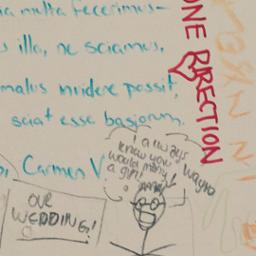 ia multa fecerimus—
illa, ne sciamus,
malus invidere possit,
sciat esse basiorum.
Carmen V.
ONE DIRECTION
always
knew you
would marry
a girl
Wayne
OUR
WEDDING!